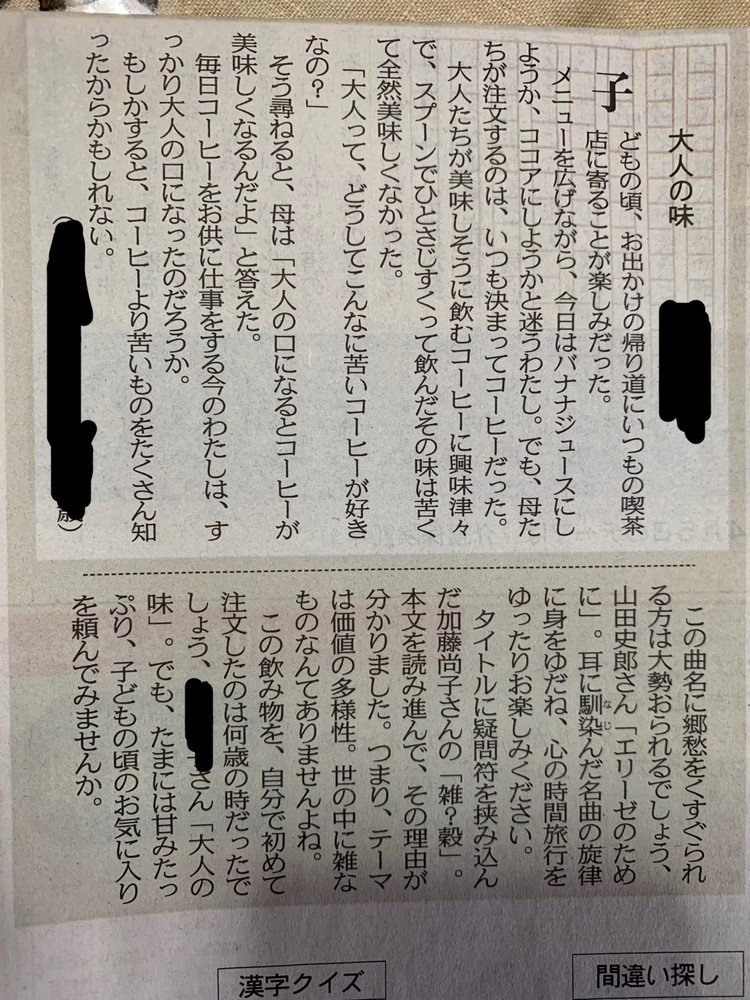 大人の味
子
どもの頃、お出かけの帰り道にいつもの喫茶
店に寄ることが楽しみだった。
メニューを広げながら、今日はバナナジュースにし
ようか、ココアにしようかと迷うわたし。でも、母た
ちが注文するのは、いつも決まってコーヒーだった。
大人たちが美味しそうに飲むコーヒーに興味津々
で、スプーンでひとさじすくって飲んだその味は苦く
て全然美味しくなかった。
「大人って、どうしてこんなに苦いコーヒーが好き
なの？」
そう尋ねると、母は「大人の口になるとコーヒーが
美味しくなるんだよ」と答えた。
毎日コーヒーをお供に仕事をする今のわたしは、す
っかり大人の口になったのだろうか。
もしかすると、コーヒーより苦いものをたくさん知
ったからかもしれない。
歳）
この曲名に郷愁をくすぐられ
る方は大勢おられるでしょう、
山田史郎さん「エリーゼのため
に」。耳に馴染んだ名曲の旋律
なじ
に身をゆだね、心の時間旅行を
ゆったりお楽しみください。
タイトルに疑問符を挟み込ん
だ加藤尚子さんの「雑？穀」。
本文を読み進んで、その理由が
分かりました。つまり、テーマ
は価値の多様性。世の中に雑な
ものなんてありませんよね。
この飲み物を、自分で初めて
注文したのは何歳の時だったで
しょう、
さん「大人の
味」。でも、たまには甘みたっ
ぷり、子どもの頃のお気に入り
を頼んでみませんか。
漢字クイズ
間違い探し